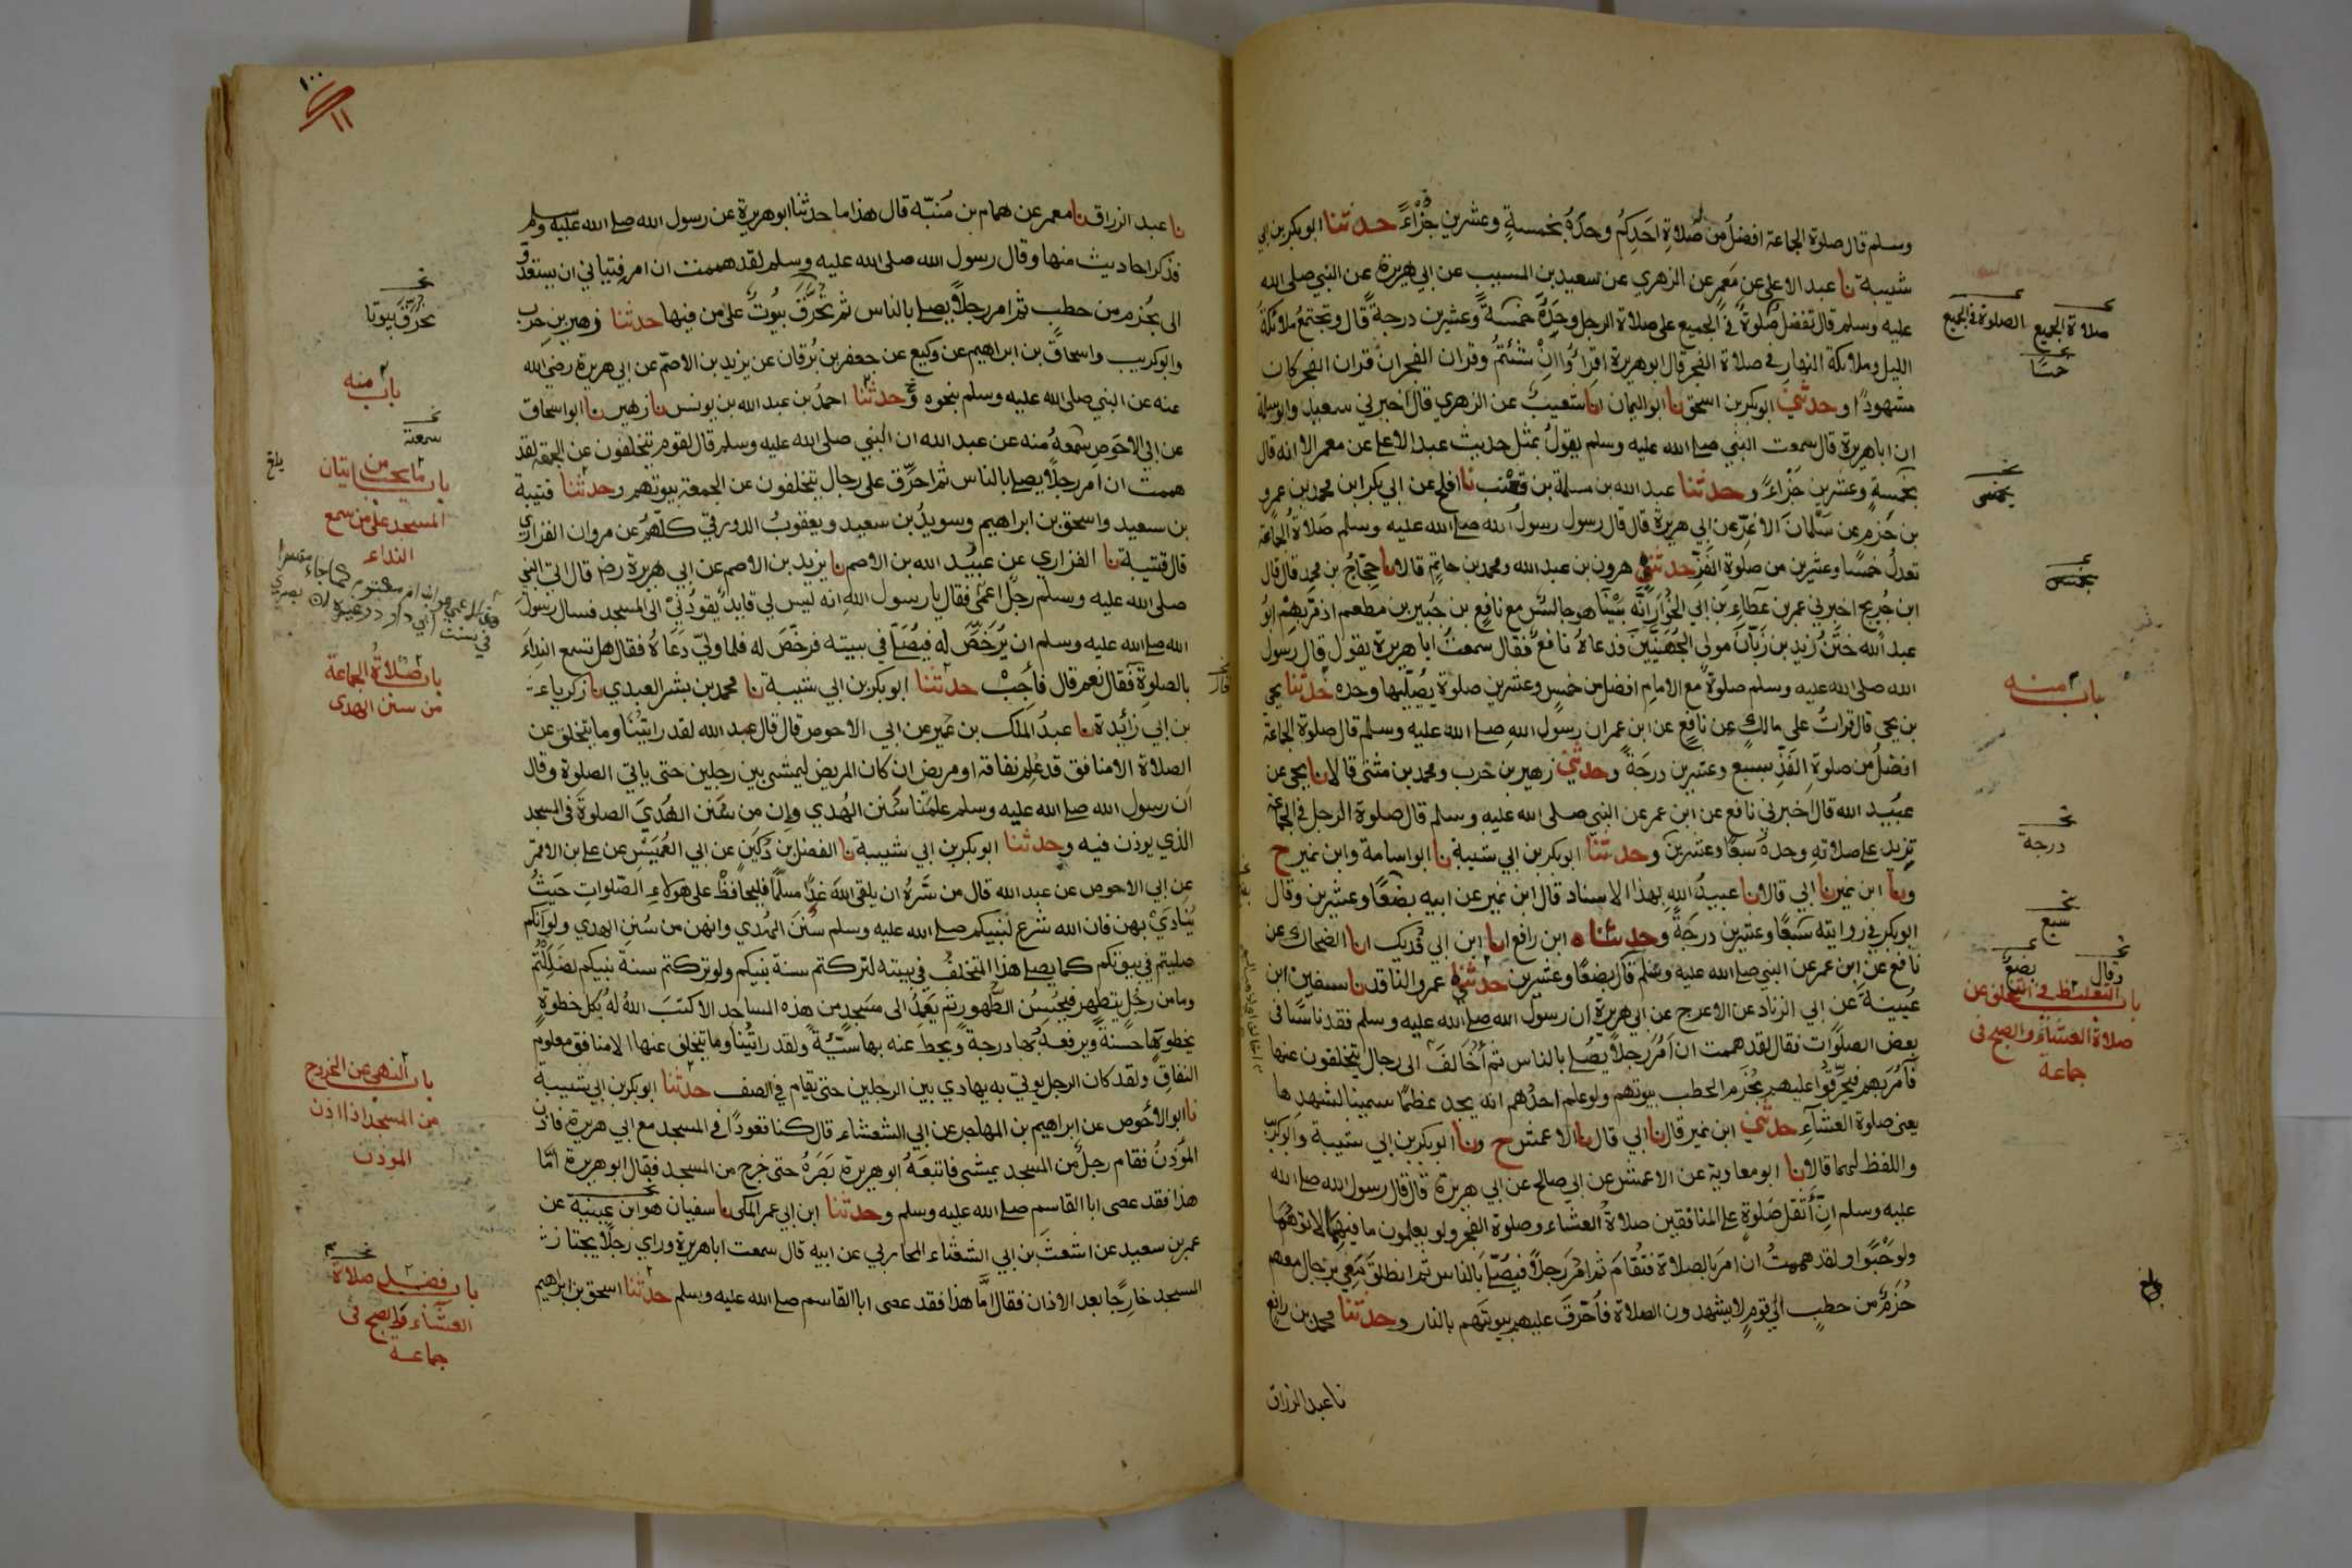 وسلم قال صلوة الجماعة افضلُ من صَلاةِ اَحَدِكُم وحدَهُ بخمسةٍ وعشرين جُزْاءً حدثنا ابوبكر بن ابي
شيبة نا عبد الاعلى عن مَعمرٍ عن الزهري عن سعيد بن المسيب عن ابي هريرة عن النبي صلى الله
عليه وسلم قال تفضلُ صَلوةٌ في الجميع على صلاة الرجل وحدَهُ خمسَةً وعشرين درجةً قال وتجتمعُ ملائكة
الليل وملائكة النهار في صلاة الفجر قال ابوهريرة اقرَءُوا ان شئتمُ وقران الفجر ان قران الفجر كان
مشهودًا وحدثني ابوبكر بن اسحق نا ابو اليمان انا شعيبٌ عن الزهري قال اخبرني سعيدٌ وابوسلمة
ان اباهريرة قال سمعت النبي صلى الله عليه وسلم يقولُ بمثل حديث عبد الاعلى عن معمر الا انه قال
بخمسةٍ وعشرين جُزْاءً وحدثنا عبد الله بن مسلمة بن قعنب نا افلح عن ابي بكر ابن محمد بن عمرو
بن حَزمٍ عن سَلْمانَ الاغرِّ عن ابي هريرة قال قال رسول رسولُ الله صلى الله عليه وسلم صَلاة الجماعة
تعدلُ خمسًا وعشرين من صلوةِ الفَذِّ حدثني هرون بن عبد الله ومحمد بن حاتمٍ قالا نا حجّاجُ بن محمد قال قال
ابن جُريج اخبرني عمر بن عطاءِ بن ابي الخُوَار اَنّه بينَا هو جالسٌ مع نافعٍ بن جُبير بن مطعم اذ مرّ بهم ابو
عبد الله خَتَنُ زيد بن زَبّانَ مولى الجُهَنيّين فدعاهُ نافعٌ فقال سمعتُ ابا هريرة يقول قال رسول
الله صلى الله عليه وسلم صلوةٌ مع الامام افضل من خمسٍ وعشرين صلوةً يُصلّيها وحده حدثنا يحيى
بن يحيى قال قراتُ على مالكٍ عن نافعٍ عن ابن عمر ان رسول الله صلى الله عليه وسلم قال صلوة الجماعة
افضلُ من صلوةِ الفَذِّ بسبعٍ وعشرين درجَةً وحدثني زهير بن حرب ومحمد بن مثنى قالا نا يحيى عن
عبيد الله قال اخبرني نافع عن ابن عمر عن النبي صلى الله عليه وسلم قال صلوة الرجل في الجماعة
تزيد على صلاته وحدهُ سبعًا وعشرين وحدثنا ابوبكر بن ابي شيبة نا ابواسامة وابن نمير ح
ونا ابن نمير نا ابي قالا نا عبيدُ الله بهذا الاسناد قال ابن نمير عن ابيه بضعًا وعشرين وقال
ابوبكر في روايته سَبعًا وعشرين درجَةً وحدثناه ابن رافع انا ابن ابي فُديك انا الضحاك عن
نافع عن ابن عمر عن النبي صلى الله عليه وسلم قال بضعًا وعشرين حدثني عمرو الناقد نا سفين ابن
عُيينة عن ابي الزناد عن الاعرج عن ابي هريرة ان رسول الله صلى الله عليه وسلم فقد ناسًا في
بعض الصلوات فقال لقد هممت ان اَمُرَ رجلاً يُصلي بالناس ثم اُخَالفَ الى رجال يتخلفون عنها
فَآمُرَ بهم فيُحَرِّقُوا عليهم بحُزَم الحطب بيوتهم ولو علم احدُهم انه يجد عظمًا سمينا لشهدها
يعنى صلوة العشاءِ حدثني ابن نمير قال نا ابي قال نا الاعمش ح ونا ابوبكر بن ابي شيبة وابوكريب
واللفظ لهما قالا نا ابو معاوية عن الاعمش عن ابي صالح عن ابي هريرة قال قال رسول الله صلى الله
عليه وسلم انّ أثقلَ صَلوةٍ على المنافقين صلاةُ العشاء وصلوة الفجر ولو يعلمون ما فيهما لاتوهما
ولو حَبْوًا ولقد هممتُ ان امرَ بالصلاة فتُقامَ ثم امُرَ رجلاً فيُصَلّيَ بالناس ثم انطلقَ معي برجال معهم
حُزَمٌ من حطبٍ الى قومٍ لا يشهدون الصلاة فأُحَرِّقَ عليهم بيوتَهم بالنار وحدثنا محمد بن رافع
نا عبد الرزاق
صلاة الجميع
الصلوة في الجميع
خمسًا
بخمس
باب منه
درجة
سبع
وقال
بضعٌ
باب التغليظ في التخلف عن
صلاة العشاء والصبح في
جماعة
بلغ
١٠٠
١١
نا عبد الرزاق نا معمر عن همام بن مُنبّه قال هذا ما حدثنا ابوهريرة عن رسول الله صلى الله عليه وسلم
فذكر احاديث منها وقال رسول الله صلى الله عليه وسلم لقد هممت ان امر فتياني ان يستعدوا
الى بحُزم من حطبٍ ثم امر رجلاً يصلى بالناس ثم تُحَرَّقَ بيُوتٌ على من فيها حدثنا زهير بن حرب
وابوكريب واسحاق بن ابراهيم عن وكيع عن جعفر بن بُرقان عن يزيد بن الاصمّ عن ابي هريرة رضي الله
عنه عن النبي صلى الله عليه وسلم بنحوه وحدثنا احمدُ بن عبد الله بن يونس نا زهير نا ابواسحاق
عن ابي الاحوَصِ سمعهُ منه عن عبد الله ان النبي صلى الله عليه وسلم قال لقوم يتخلفون عن الجمعة لقد
هممت ان امر رجلاً يصلى بالناس ثم احرّق على رجال يتخلفون عن الجمعة بيوتهم وحدثنا قتيبة
بن سعيد واسحق بن ابراهيم وسويدُ بن سعيد ويعقوبُ الدورقي كلّهم عن مروان الفزاري
قال قتيبة نا الفزاري عن عبيُد الله بن الاصم نا يزيد بن الاصم عن ابي هريرة رضـ قال اتى النبي
صلى الله عليه وسلم رجلٌ اعمى فقال يا رسول الله انه ليس لي قايدٌ يقودُني الى المسجد فسال رسولَ
الله صلى الله عليه وسلم ان يُرَخِّصَ له فيُصَلّيَ في بيته فرخّصَ له فلما ولّى دَعَاهُ فقال هل تسمع النداءَ
بالصلوةِ فقال نعم قال فأجِبْ حدثنا ابوبكر بن ابي شيبة نا محمد بن بشر العبدي نا زكرياء
بن ابي زائدة نا عبدُ الملك بن عُمير عن ابي الاحوص قال قال عبد الله لقد رايتُنا وما يتخلف عن
الصلاة الا منافق قد عُلم نفاقه او مريض ان كان المريض ليمشى بين رجلين حتى ياتي الصلوة وقال
ان رسول الله صلى الله عليه وسلم علمَنا سُنن الهُدي وان من سُنَن الهُدَي الصلوةَ في المسجد
الذي يوذن فيه وحدثنا ابوبكر بن ابي شيبة نا الفضل بن دُكَين عن ابي العُمَيسِ عن على بن الاقمرِ
عن ابي الاحوص عن عبد الله قال من سَرّهُ ان يلقى اللهَ غدًا مسلمًا فليحافظْ على هولاءِ الصّلوات حَيثُ
يُنَادَي بهن فان الله شرع لنبيكم صلى الله عليه وسلم سُنَنَ الهُدي وانهن من سُننِ الهدي ولو انكم
صليتم في بيوتكم كما يصلى هذا المتخلفُ في بيته لتركتم سنة نبيكم ولو تركتم سنةَ نبيكم لضَلَلْتُم
وما من رجُلٍ يتطهر فيُحسِنُ الطُّهور ثم يَعمِدُ الى مَسَجدٍ من هذه المساجد الا كتبَ اللهُ لهُ بكل خطوةٍ
يخطوها حَسنةً ويرفعهُ بها درجة ويحط عنه بها سيّئةً ولقد رايتُنا وما يتخلف عنها الا منافق معلوم
النفاقِ ولقد كان الرجل يوتي به يهادي بين الرجلين حتى يقام في الصف حدثنا ابوبكر بن ابي شيبة
نا ابوالأحوص عن ابراهيم بن المهاجر عن ابي الشعثاء قال كنا قعودًا في المسجد مع ابي هريرة فاذن
المؤذنُ فقام رجلٌ من المسجد يمشى فاتبعَهُ ابوهريرة بَصَرَهُ حتى خرج من المسجد فقال ابوهريرة أمّا
هذا فقد عصى ابا القاسم صلى الله عليه وسلم وحدثنا ابن ابي عمر المكى نا سفيان هو ابن عيينة عن
عمر بن سعيد عن اشعثَ بن ابي الشعثاء المحاربي عن ابيه قال سمعت اباهريرة وراي رجلاً يجتازُ
المسجد خارجًا بعد الاذان فقال امَّا هذا فقد عصى ابا القاسم صلى الله عليه وسلم حدثنا اسحق بن ابراهيم
نحرق بيوتا
باب منه
سمعة
بلغ
باب ما يجب من اتيان
المسجد على من سمع
النداء
باب صلاةُ الجماعة
من سنن الهدى
باب النهي عن الخروج
من المسجد اذا اذن
الموذن
باب فضل صلاة
العشاء والصبح في
جماعة